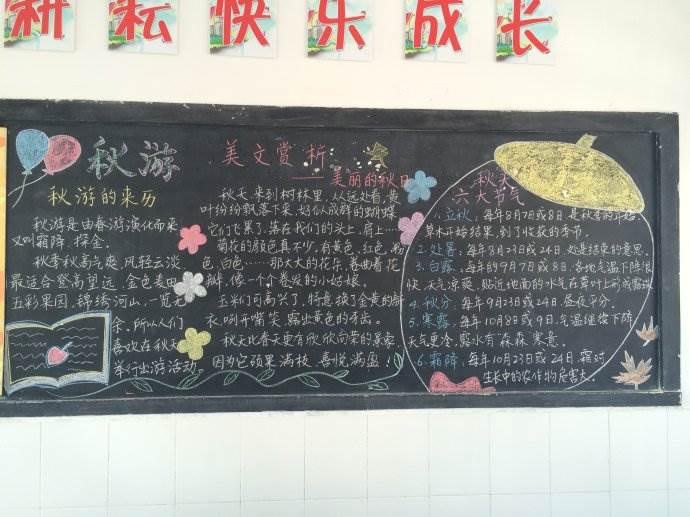 耕耘快乐成长
秋游
秋游的来历
秋游是由春游演化而来
又叫霜降,探金。
秋季秋高气爽,风轻云淡,
最适合登高望远,金色麦田,
五彩果园,锦绣河山,一览无
余,所以人们
喜欢在秋天
举行出游活动
美文赏析
——美丽的秋日
秋天来到树林里,从远处看,黄
叶纷纷飘落下来,好似成群的蝴蝶
它们飞累了,落在我们的头上,肩上…
菊花的颜色真不少,有黄色,红色,粉
色,白色……那大大的花朵,卷曲着花
瓣,像一个个卷发的小姑娘。
玉米们可高兴了,特意换了金黄的新
衣,咧开嘴笑,露出黄色的牙齿。
秋天比春天更有欣欣向荣的景象,
因为它硕果满枝,喜悦满盈!
秋天
六大节气
1.立秋,每年8月7日或8日是秋季的开始
草木开始结果,到了收获的季节。
2.处暑,每年8月23日或24日,处是结束的意思。
3.白露,每年的9月7日或8日,各地气温下降很
快,天气凉爽,贴近地面的水气在草叶上形成露珠
4.秋分,每年9月23日或24日,昼夜平分。
5.寒露,每年10月8日或9日,气温继续下降
天气更冷,露水有森森寒意。
6.霜降,每年10月23日或24日,霜对
生长中的农作物危害大。